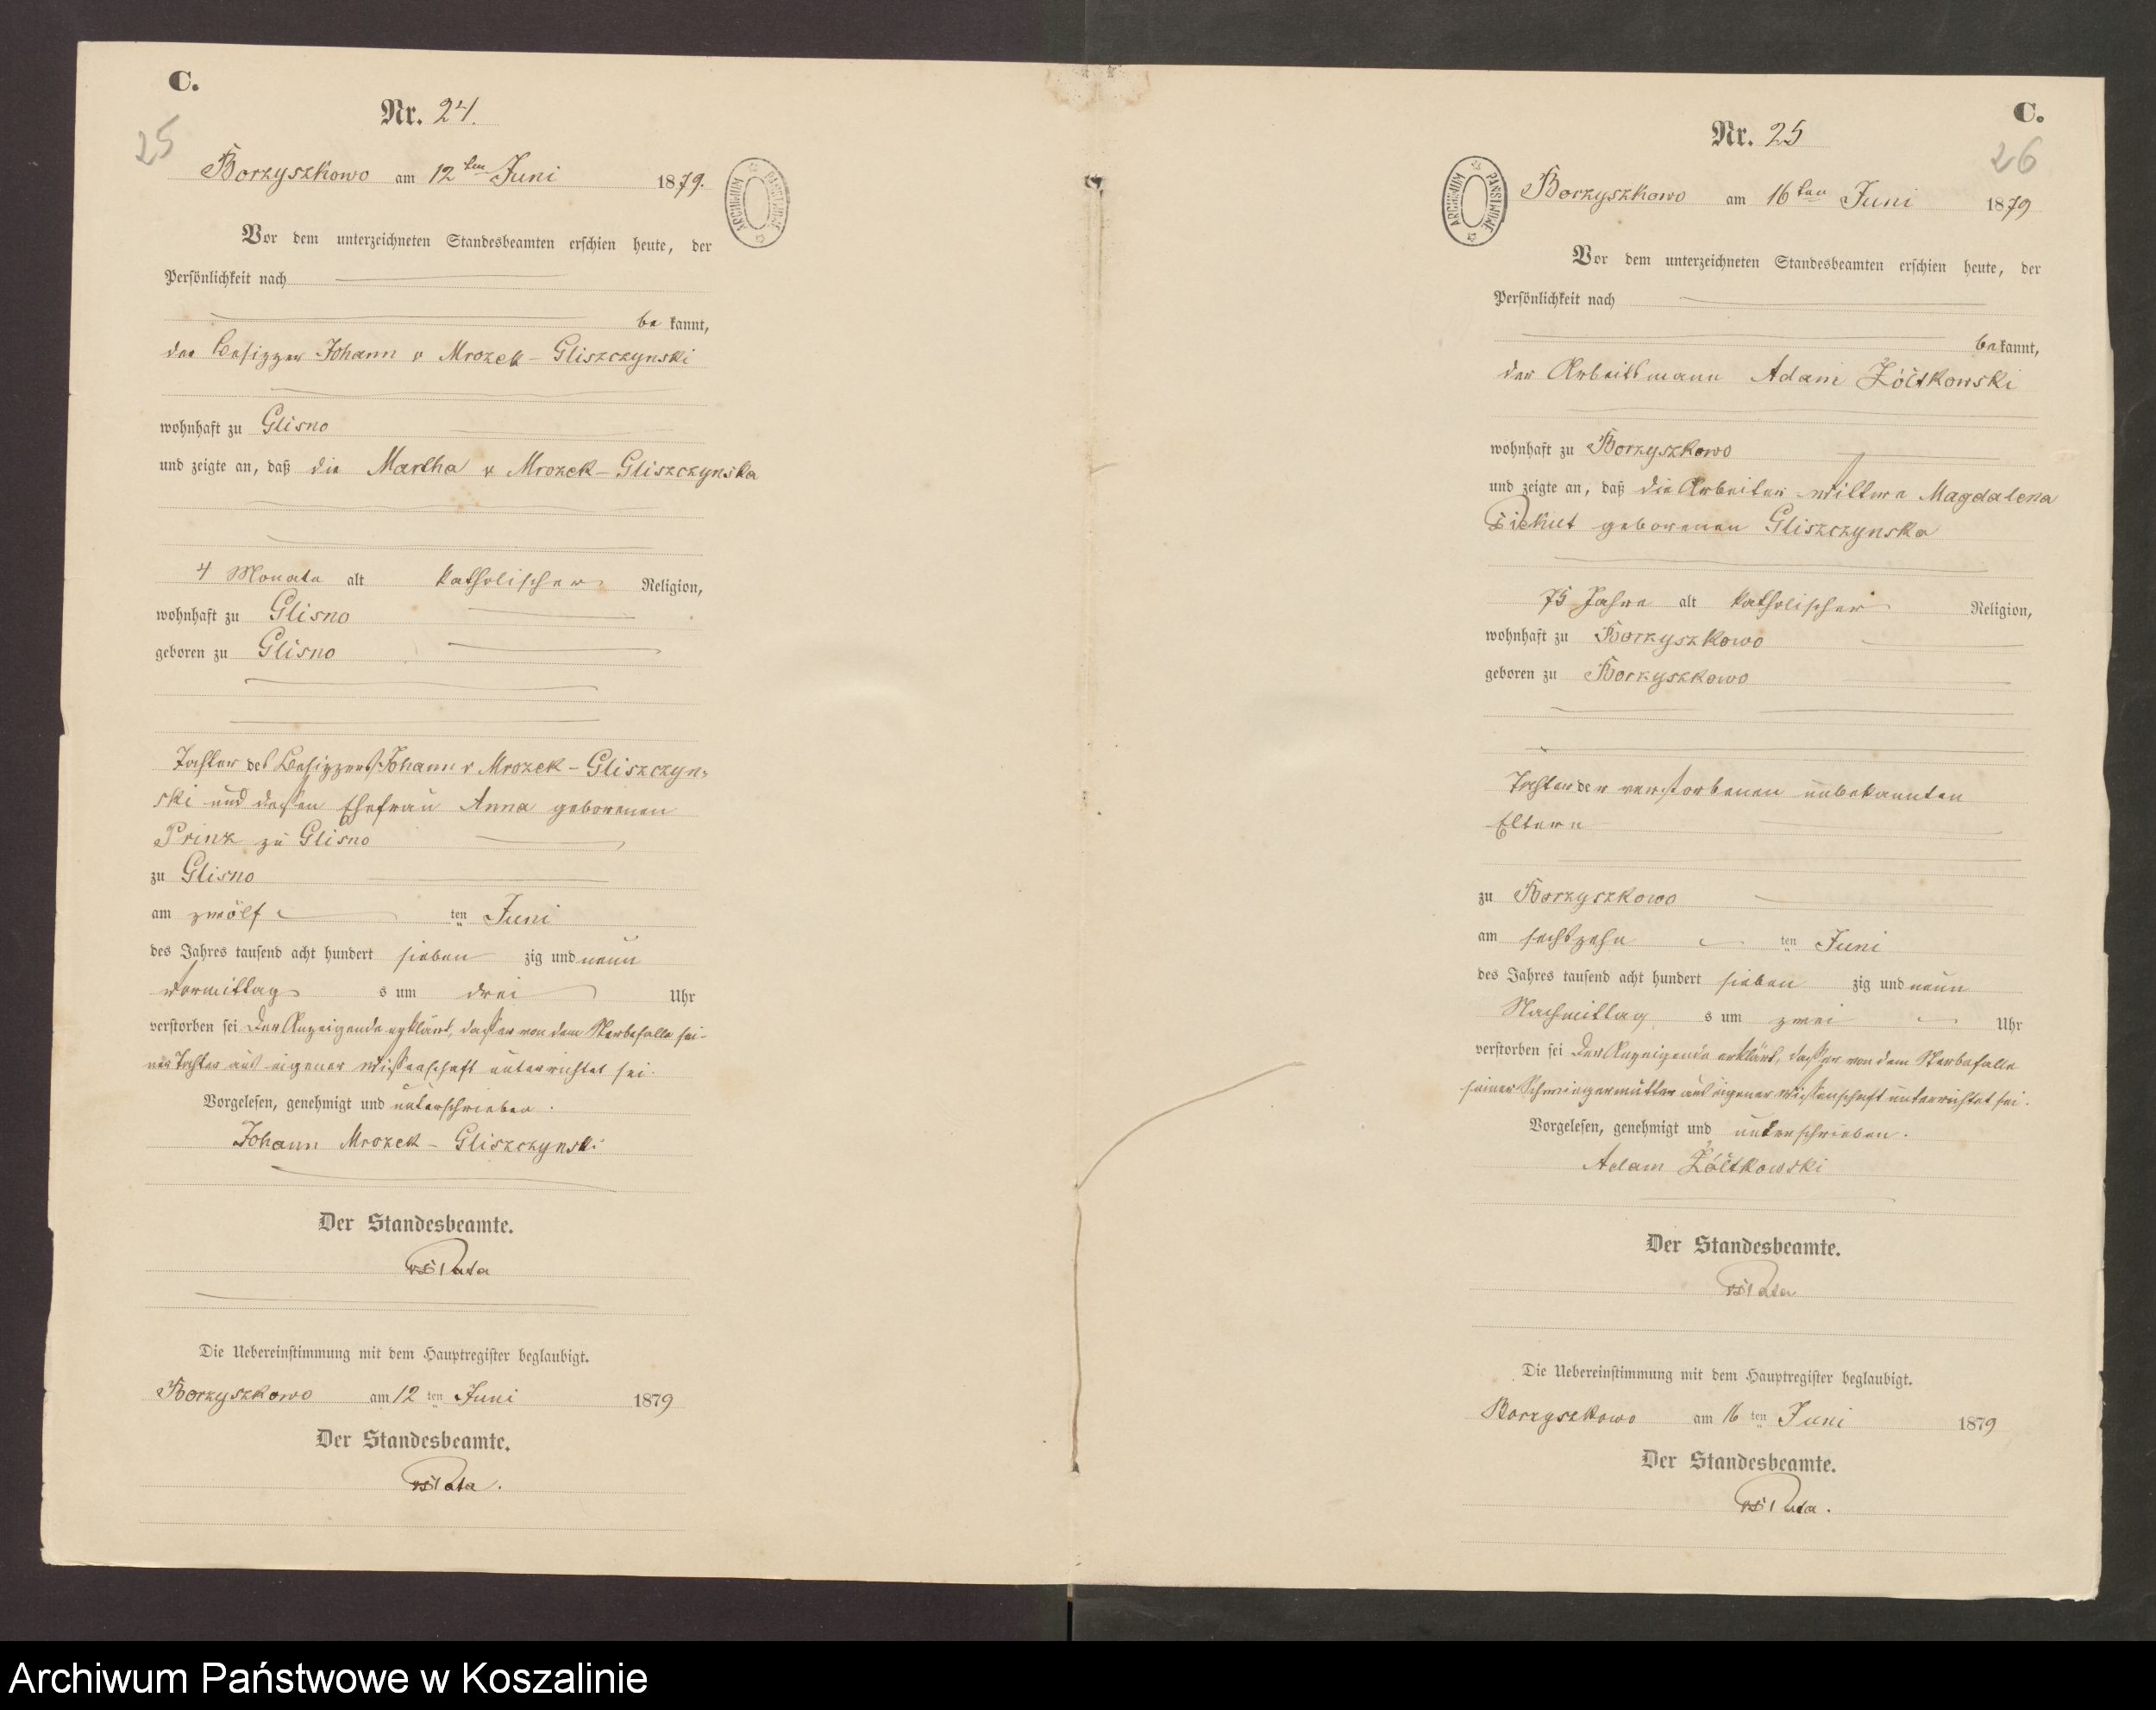 C.
Nr. 24.
25
Borzyszkowo am 12ten Juni 1879.
ARCHIWUM PAŃSTWOWE
Vor dem unterzeichneten Standesbeamten erschien heute, der
Persönlichkeit nach
be kannt,
der Besizzer Johann v Mrozek-Gliszczynski
wohnhaft zu Glisno
und zeigte an, daß die Martha v Mrozek-Gliszczynska
4 Monate alt katholischer Religion,
wohnhaft zu Glisno
geboren zu Glisno
Tochter des Besizzers Johann v Mrozek-Gliszczyn-
ski und dessen Ehefrau Anna geborenen
Prinz zu Glisno
zu Glisno
am zwölf ten Juni
des Jahres tausend acht hundert sieben zig und neun
Vormittag s um drei Uhr
verstorben sei Der Anzeigende erklärt, dass er von dem Sterbefalle sei-
ner Tochter aus eigener Wissenschaft unterrichtet sei.
Vorgelesen, genehmigt und unterschrieben.
Johann Mrozek-Gliszczynski
Der Standesbeamte.
Die Uebereinstimmung mit dem Hauptregister beglaubigt.
Borzyszkowo am 12 ten Juni 1879
Der Standesbeamte.
C.
Nr. 25
26
Borzyszkowo am 16ten Juni 1879
ARCHIWUM PAŃSTWOWE
Vor dem unterzeichneten Standesbeamten erschien heute, der
Persönlichkeit nach
bekannt,
der Arbeitsmann Adam Żółtkowski
wohnhaft zu Borzyszkowo
und zeigte an, daß die Arbeiter Wittwe Magdalena
geborenen Gliszczynska
75 Jahre alt katholischer Religion,
wohnhaft zu Borzyszkowo
geboren zu Borzyszkowo
Tochter der verstorbenen unbekannten
Eltern
zu Borzyszkowo
am sechszehn ten Juni
des Jahres tausend acht hundert sieben zig und neun
Nachmittag s um zwei Uhr
verstorben sei Der Anzeigende erklärt, dass er von dem Sterbefalle
seiner Schwiegermutter aus eigener Wissenschaft unterrichtet sei.
Vorgelesen, genehmigt und unterschrieben.
Adam Żółtkowski
Der Standesbeamte.
Die Uebereinstimmung mit dem Hauptregister beglaubigt.
Borzyszkowo am 16 ten Juni 1879
Der Standesbeamte.
Archiwum Państwowe w Koszalinie